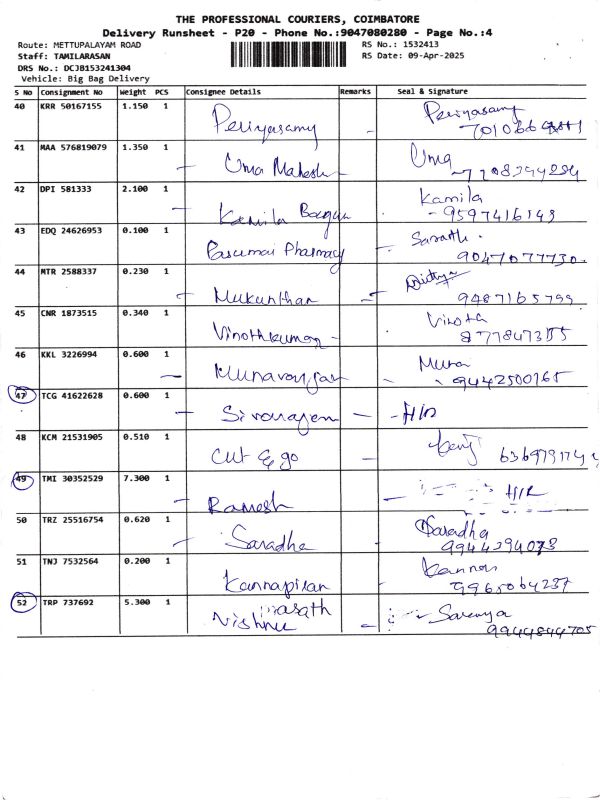 THE PROFESSIONAL COURIERS, COIMBATORE
Delivery Runsheet - P20 - Phone No.:9047080280 - Page No.:4
Route: METTUPALAYAM ROAD RS No.: 1532413
Staff: TAMILARASAN RS Date: 09-Apr-2025
DRS No.: DCJB153241304
Vehicle: Big Bag Delivery
S No Consignment No Weight PCS Consignee Details Remarks Seal & Signature
40 KRR 50167155 1.150 1 Periyasamy Periyasamy
41 MAA 576819079 1.350 1 Uma Mahesh Uma
7708394284
42 DPI 581333 2.100 1 Kamila Kamila
9597416143
43 EDQ 24626953 0.100 1 Pasumai Pharmacy Sarath
9047077730
44 MTR 2588337 0.230 1 Mukunthan
9487165799
45 CNR 1873515 0.340 1 Vinothkumar Vinoth
46 KKL 3226994 0.600 1
9442500765
47 TCG 41622628 0.600 1 Sivarajen H/R
48 KCM 21531905 0.510 1 Cut & go
49 TMI 30352529 7.300 1 Ramesh H/R
50 TRZ 25516754 0.620 1 Saradha Saradha
9944294073
51 TNJ 7532564 0.200 1 Kannapiran Kannan
9965064237
52 TRP 737692 5.300 1 Vishnu Saranya
9944844705